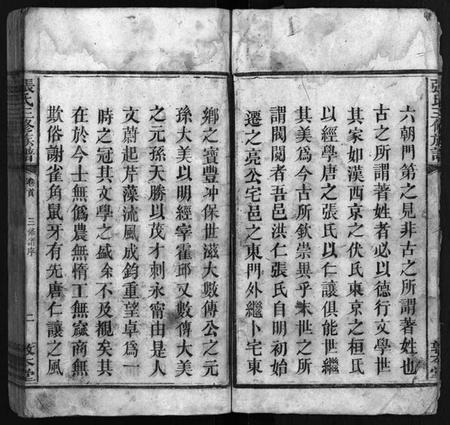 六朝門第之見非古之所謂著姓也
古之所謂著姓者必以德行文學世
其家如漢西京之伏氏東京之桓氏
以經學唐之張氏以仁讓俱能世繼
其美爲今古所欽崇異乎末世之所
謂閥閱者吾邑洪仁張氏自明初始
遷之亮公宅邑之東門外繼卜宅東
鄉之寶豐冲保世滋大數傳公之元
孫大美以明經宰霍邱又數傳大美
之元孫天勝以茂才刺永甯由是人
文蔚起芹藻流風成鈞重望卓爲一
時之冠其文學之盛余不及覩矣其
在於今士無僞農無惰工無窳商無
欺俗謝雀角鼠牙有先唐仁讓之風
張氏三修族譜
卷首
三修譜序
二